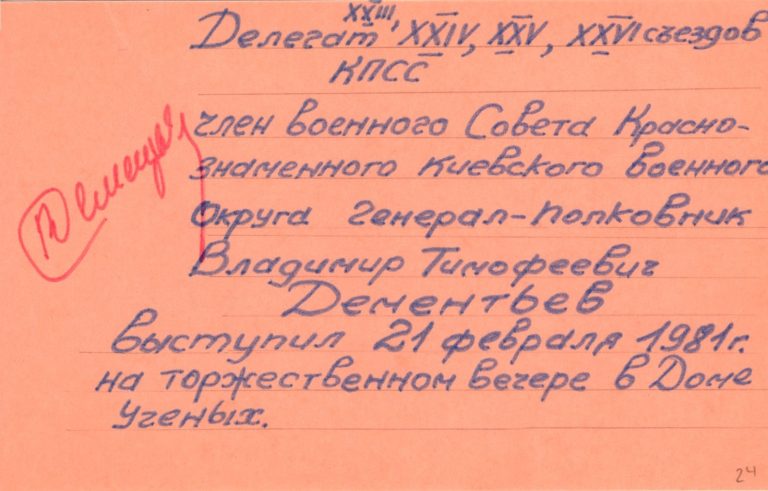 XXIII,
Делегат XXIV, XXV, XXVI съездов
КПСС
член военного Совета Красно-
знаменного Киевского военного
Округа генерал-полковник
Владимир Тимофеевич
Дементьев
выступил 21 февраля 1981г.
на торжественном вечере в Доме
Ученых.
24